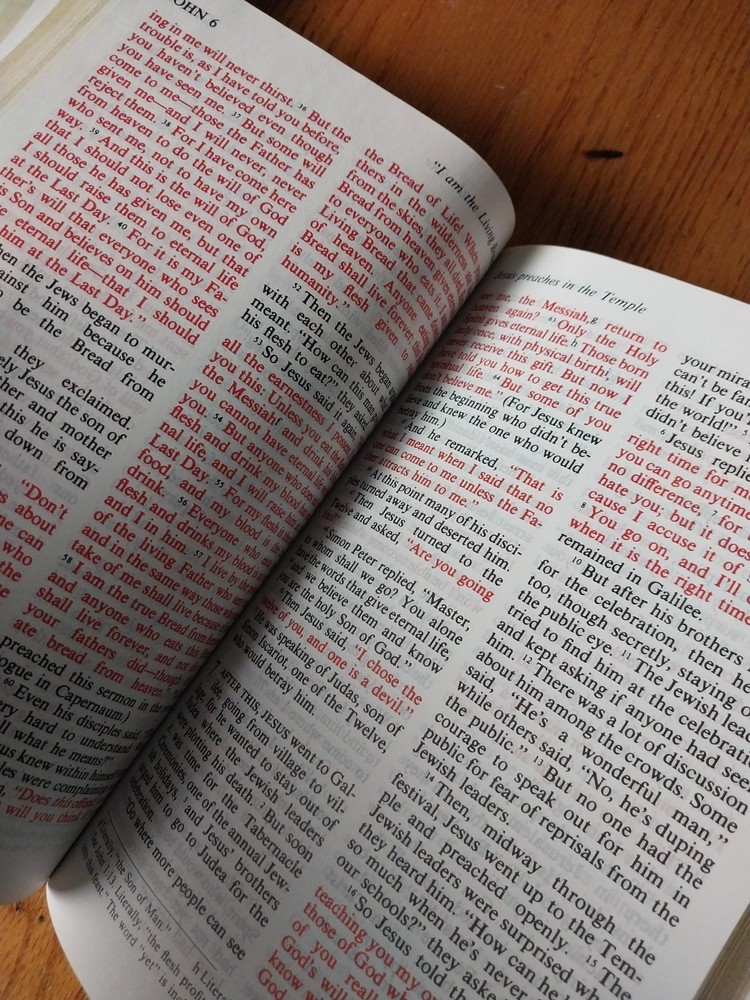 OHN 6
ing in me will never thirst. 36 But the
trouble is, as I have told you before,
you haven't believed even though
you have seen me. 37 But some will
come to me—those the Father has
given me—and I will never, never
reject them. 38 For I have come here
from heaven to do the will of God
who sent me, not to have my own
way. 39 And this is the will of God,
that I should not lose even one of
all those he has given me, but that
I should raise them to eternal life
at the Last Day. 40 For it is my Fa-
ther's will that everyone who sees
his Son and believes on him should
eternal life—that I should
him at the Last Day."
hen the Jews began to mur-
against him because he
to be the Bread from
they exclaimed.
ely Jesus the son of
ther and mother
this he is say-
down from
"Don't
s about
me can
who
the
preached this sermon in the
ogue in Capernaum.)
60 Even his disciples said,
ery hard to understand
ll what he means?"
us knew within himself
les were complaining
"Does this offend
will you think
"I am the Living
the Bread of Life! When
thers in the wilderness
from the skies, they all
Bread from heaven gives
to everyone who eats it. I
Living Bread that came
of heaven. Anyone
Bread shall live forever
is my flesh given to
humanity."
52 Then the Jews began
with each other about
meant. "How can this man
his flesh to eat?" they
53 So Jesus said it again,
all the earnestness I possess
you this: Unless you eat
the Messiah f and drink
you cannot have eternal life
54 But anyone who does
flesh and drink my blood
nal life, and I will raise
Last Day. 55 For my flesh
food, and my blood is
drink. 56 Everyone who
flesh and drinks my blood
and I in him. 57 I live by the
of the living Father who
and in the same way those
take of me shall live because
58 I am the true Bread from
and anyone who eats this
shall live forever, and not
your fathers did—though
ate bread from heaven.
Jesus preaches in the Temple
me, the Messiah, g return to
heaven again? 63 Only the Holy
Spirit gives eternal life. h Those born
only once, with physical birth, i will
never receive this gift. But now I
have told you how to get this true
64 But some of you
don't believe me." (For Jesus knew
from the beginning who didn't be-
lieve and knew the one who would
betray him.)
And he remarked, "That is
what I meant when I said that no
one can come to me unless the Fa-
ther attracts him to me."
66 At this point many of his disci-
ples turned away and deserted him.
Then Jesus turned to the
Twelve and asked, "Are you going
Simon Peter replied, "Master,
to whom shall we go? You alone
have the words that give eternal life,
and we believe them and know
you are the holy Son of God."
Then Jesus said, "I chose the
twelve of you, and one is a devil."
He was speaking of Judas, son of
Simon Iscariot, one of the Twelve,
who would betray him.
7 AFTER THIS, JESUS went to Gal-
ilee, going from village to vil-
lage, for he wanted to stay out of
Judea where the Jewish leaders
were plotting his death. 2 But soon
it was time for the Tabernacle
Ceremonies, one of the annual Jew-
3 and Jesus' brothers
urged him to go to Judea for the
celebration.
"Go where more people can see
Literally, "the Son of Man."
h Literally
John 1:13. Literally, "the flesh profits
The word "yet" is in
your mira
can't be fa
this! If you'r
the world!"
didn't believe
Jesus replie
right time for m
you can go anytim
no difference, 7 for
hate you; but it does
cause I accuse it of
8 You go on, and I'll
when it is the right time
remained in Galilee.
10 But after his brothers
for the celebration, then he
too, though secretly, staying o
the public eye. 11 The Jewish lead
tried to find him at the celebrati
and kept asking if anyone had see
him. 12 There was a lot of discussion
about him among the crowds. Some
said, "He's a wonderful man,"
while others said, "No, he's duping
the public." 13 But no one had the
courage to speak out for him in
public for fear of reprisals from the
Jewish leaders.
14 Then, midway through the
festival, Jesus went up to the Tem-
ple and preached openly. 15 The
Jewish leaders were surprised when
they heard him. "How can he
so much when he's never
our schools?" they aske
16 So Jesus told the
teaching you my o
those of God wh
of you reall
God's will
know w
God